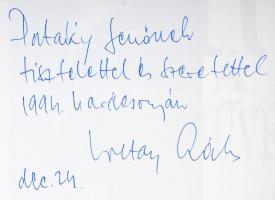 Pataky Jenőnek
tisztelettel és szeretettel
1994. karácsonyán
dec. 24.